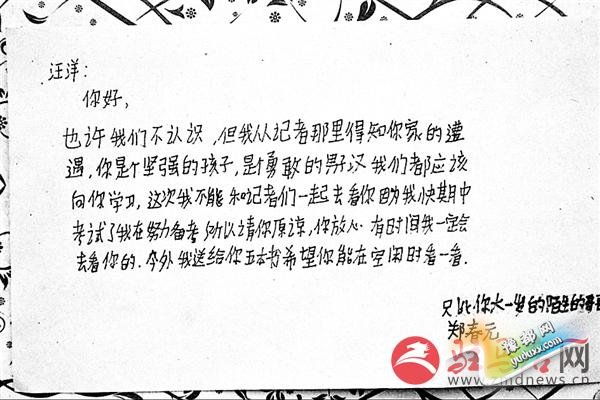 汪洋：
你好，
也许我们不认识，但我从记者那里得知你家的遭
遇，你是个坚强的孩子，是个勇敢的男子汉我们者都应该
向你学习，这次我不能和记者们一起去看你因为我快期中
考试了我在努力备考所以请你原谅，你放心 有时间我一定会
去看你的．今外我送给你五本书希望你能在空闲时看一看．
只比你大一岁的陌生的哥哥
郑春元
豫都网
yuduxx.com
网
www.zmdnews.cn